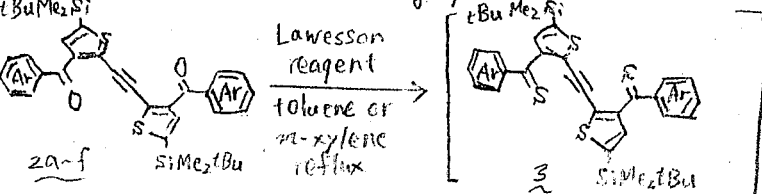 tBuMe2Si
S
Ar
O
O
Ar
S
SiMe2tBu
2a~f
Lawesson
reagent
toluene or
m-xylene
reflux
tBuMe2Si
S
Ar
S
S
Ar
S
SiMe2tBu
3